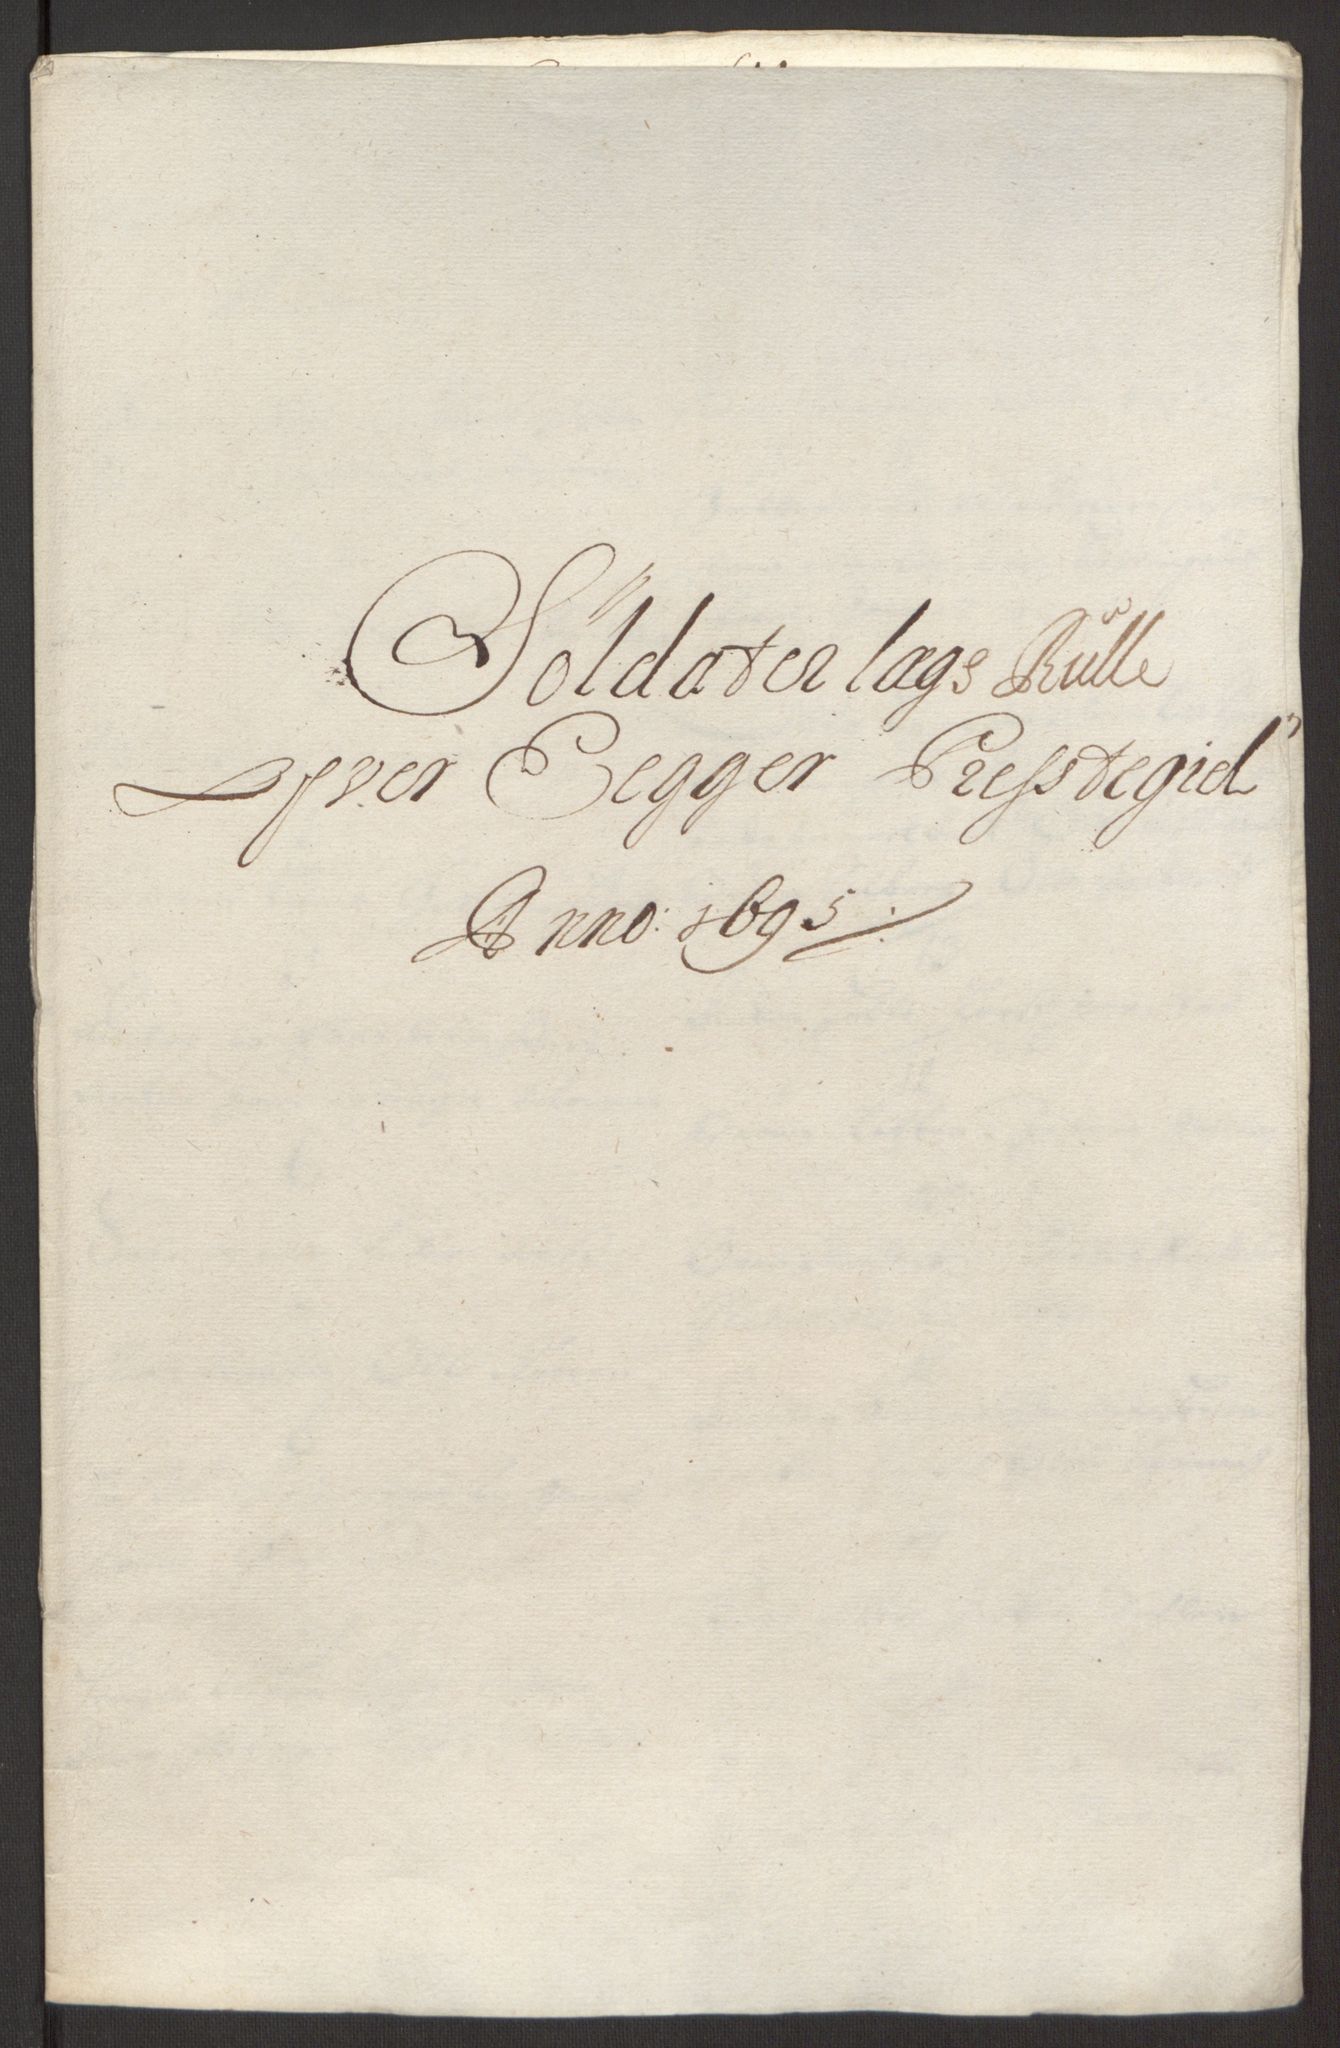 Soldater lægs Rulle
over Egger Presstegield
Anno: 1695.